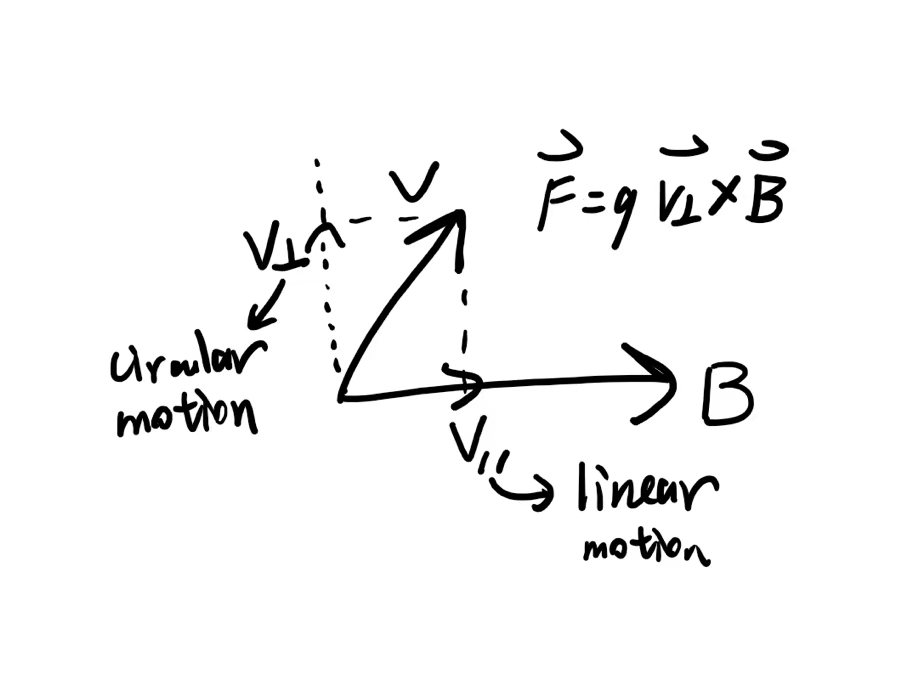 V
F = q V⊥ × B
V⊥
circular
motion
B
V//
linear
motion